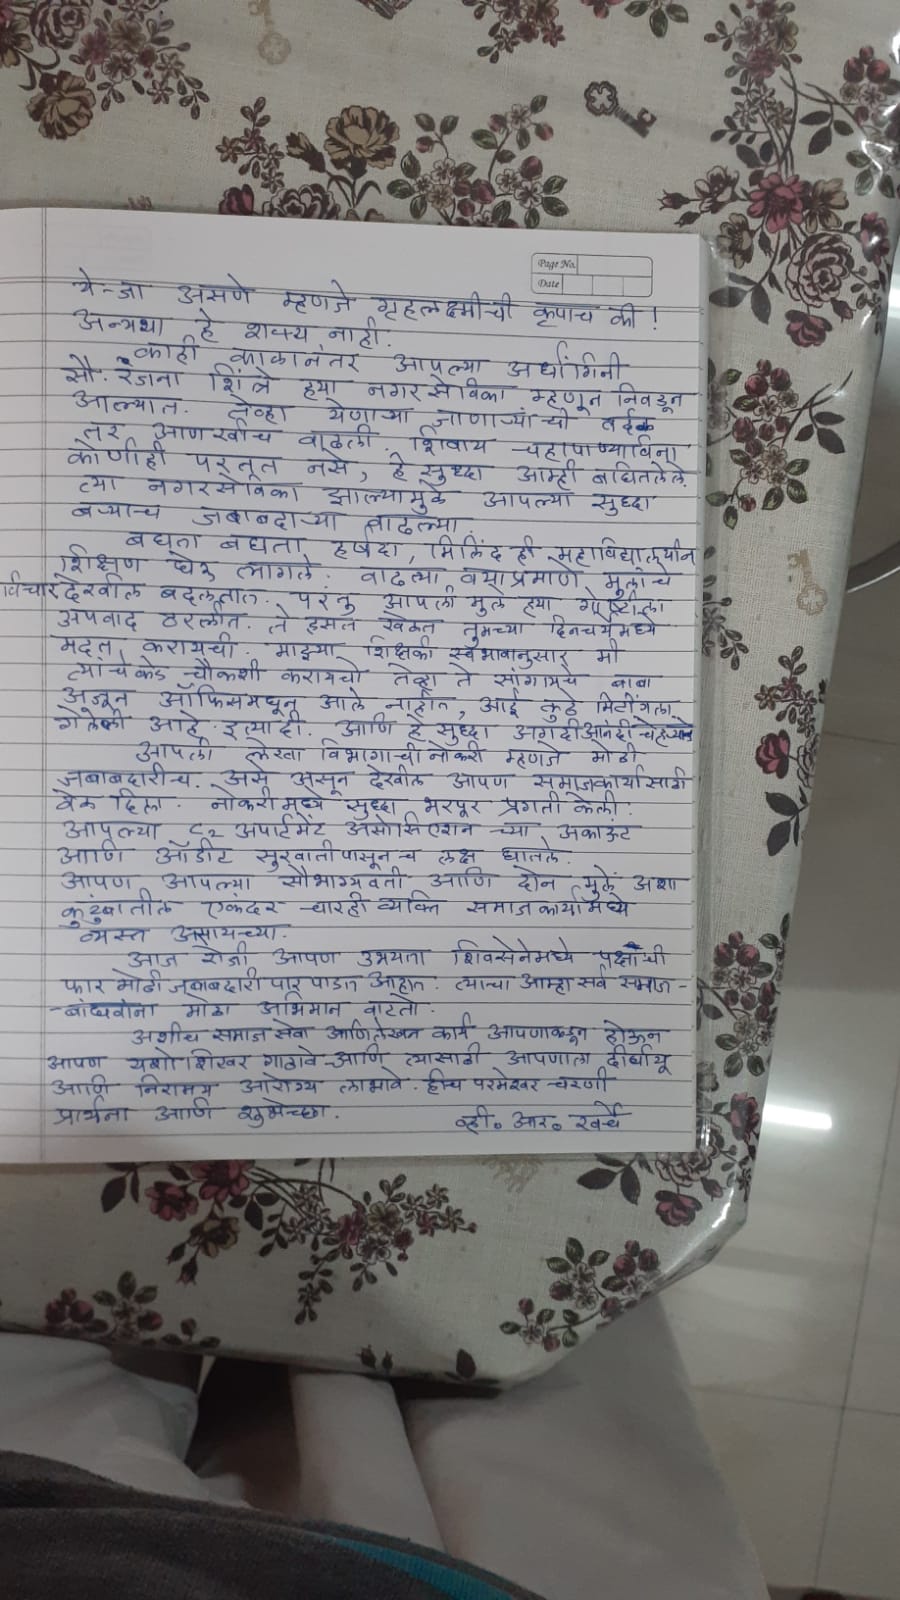 Page No.
Date
ये-जा असणे म्हणजे गृहलक्ष्मीची कृपाच की!
अन्यथा हे शक्य नाही.
काही काळानंतर आपल्या अर्धांगिनी
सौ. रंजना शिंत्रे हया नगरसेविका म्हणून निवडून
आल्यात. तेव्हा येणाऱ्या जाणाऱ्यांची वर्दळ
तर आणखीच वाढली. शिवाय चहापाण्याविना
कोणीही परतूत नसे, हे सुध्दा आम्ही बघितलेले.
त्या नगरसेविका झाल्यामुळे आपल्या सुध्दा
बऱ्याच जबाबदाऱ्या वाढल्या.
बघता बघता हर्षदा, मिलिंद ही महाविद्यालयीन
शिक्षण घेऊ लागले. वाढत्या वयाप्रमाणे मुलांचे
विचार देखील बदलतात. परंतु आपली मुले हया गोष्टीला
अपवाद ठरलीत. ते हसत खेळत तुमच्या दिनचर्येमध्ये
मदत करायची. माझ्या शिक्षकी स्वभावानुसार मी
त्यांचेकडे चौकशी करायचो तेव्हा ते सांगायचे बाबा
अजून ऑफिसमधून आले नाहीत, आई कुठे मिटींगला
गेलेली आहे. इत्यादी. आणि हे सुध्दा अगदी आनंदी चेहऱ्याने
आपली लेखा विभागाची नोकरी म्हणजे मोठी
जबाबदारीच. असे असून देखील आपण समाजकार्यासाठी
वेळ दिला. नोकरीमध्ये सुध्दा भरपूर प्रगती केली.
आपल्या C2 अपार्टमेंट असोसिएशन च्या अकाऊंट
आणि ऑडीट सुरवातीपासूनच लक्ष घातले.
आपण आपल्या सौभाग्यवती आणि दोन मुले अशा
कुटुंबातील एकंदर चारही व्यक्ति समाजकार्यामध्ये
व्यस्त असायच्या.
आज रोजी आपण उभयता शिवसेनेमध्ये पक्षाची
फार मोठी जबाबदारी पार पाडत आहात. त्याचा आम्हा सर्व समाज-
-बांधवांना मोठा अभिमान वाटतो.
अशीच समाज सेवा आणि लेखन कार्य आपणाकडून होऊन
आपण यशोशिखर गाठावे आणि त्यासाठी आपणाला दीर्घायू
आणि निरामय आरोग्य लाभावे. हीच परमेश्वर चरणी
प्रार्थना आणि शुभेच्छा.
व्ही. आर. खर्चे